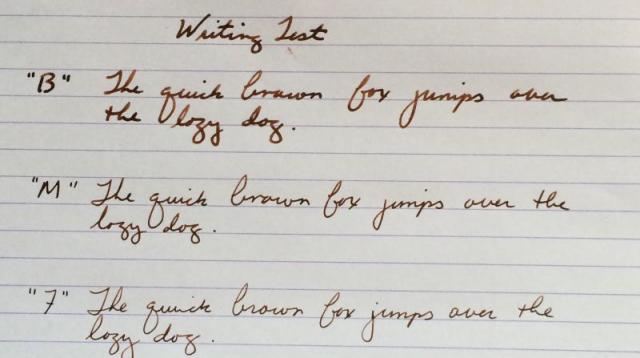 Writing Test
"B" The quick brown fox jumps over
the lazy dog.
"M" The quick brown fox jumps over the
lazy dog.
"F" The quick brown fox jumps over the
lazy dog.